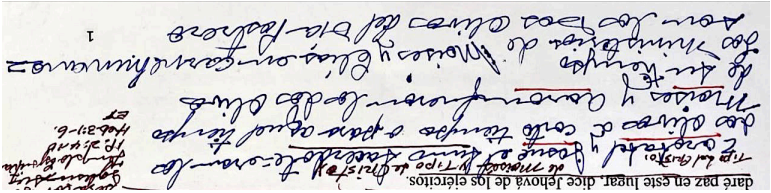 daré paz en este lugar, dice Jehová de los ejércitos.
Tipo del Cristo de moises y Tipo de Cristo
Zorobabel y Josue el sumo sacerdote eran los
dos olivos corto tiempo o para aquel tiempo
Moises y Aaron fueron los dos olivos
de su tiempo
Los ministerios de Moises y Elias en carne humana =
son los Dos Olivos del Dia Postrero
1
1P. 2:4-10
Heb 3:1-6.
Ef